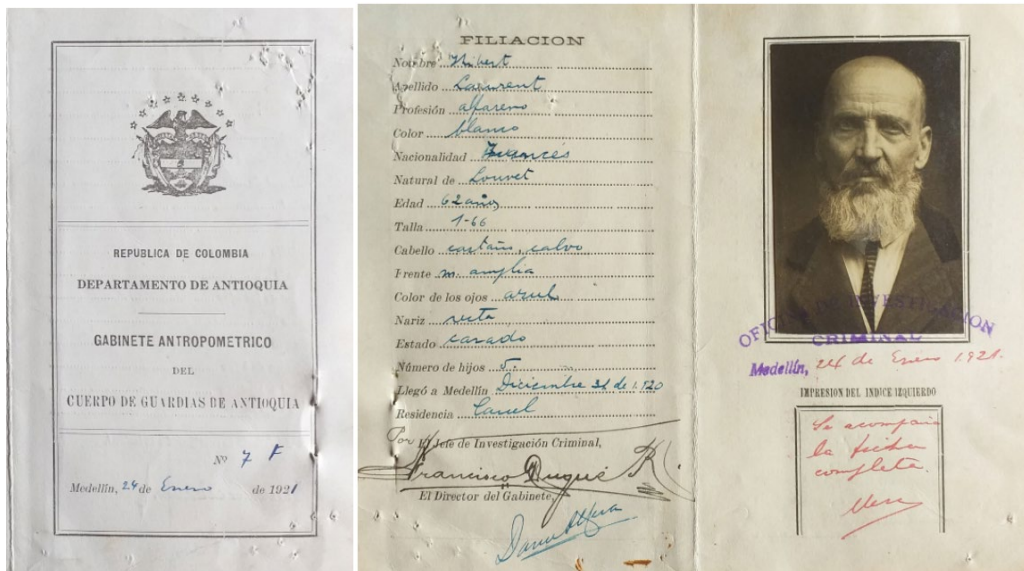 REPUBLICA DE COLOMBIA
DEPARTAMENTO DE ANTIOQUIA
GABINETE ANTROPOMETRICO
DEL
CUERPO DE GUARDIAS DE ANTIOQUIA
Nº 7 F
Medellin, 24 de Enero de 1921
FILIACION
Nombre
Apellido Laurent
Profesión alfarero
Color blanco
Nacionalidad Francés
Natural de Louvet
Edad 62 años
Talla 1-66
Cabello castaño, calvo
Frente m. amplia
Color de los ojos azul
Nariz recta
Estado casado
Número de hijos 5.
Llegó a Medellin Diciembre 31 de 1.920
Residencia
Por El Jefe de Investigación Criminal,
Francisco Duque R
El Director del Gabinete,
OFICINA DE INVESTIGACION
CRIMINAL
Medellin, 24 de Enero 1.921.
IMPRESION DEL INDICE IZQUIERDO
Se acompaña
la ficha
completa.